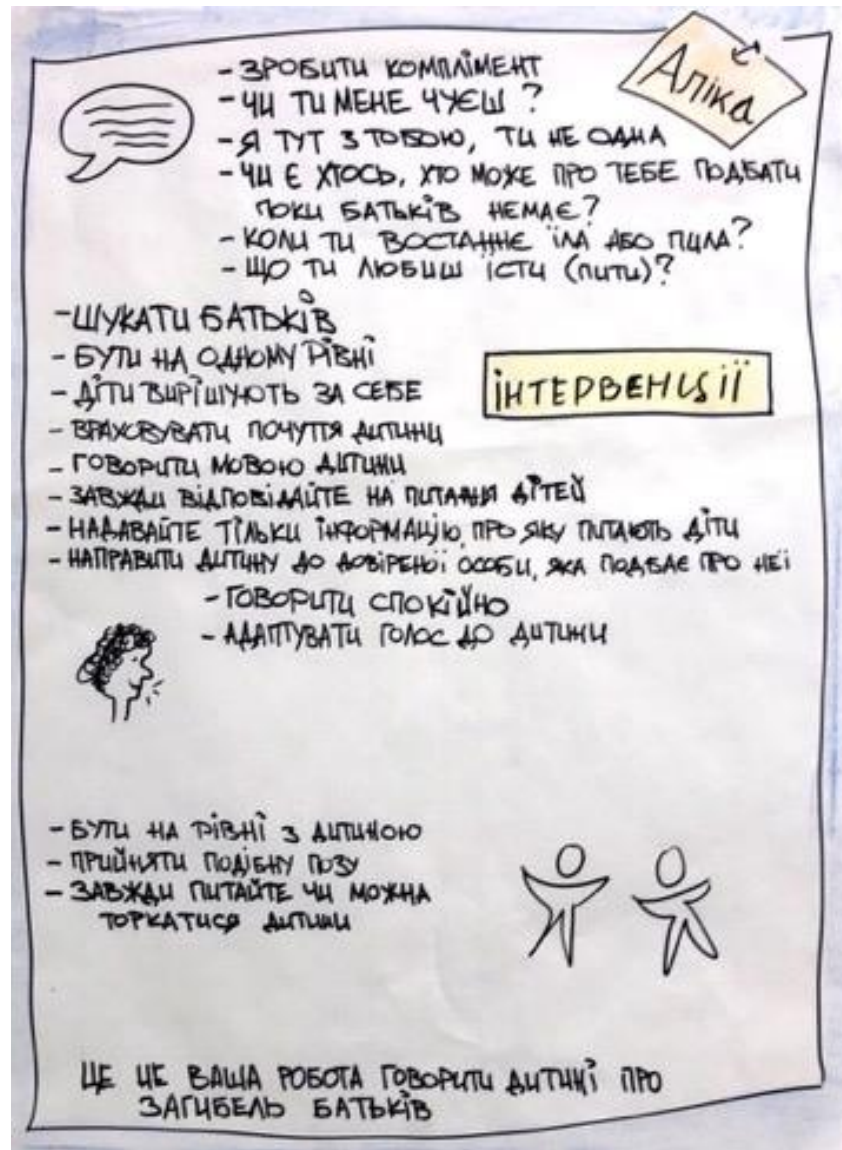 Аліка
- ЗРОБИТИ КОМПЛІМЕНТ
- ЧИ ТИ МЕНЕ ЧУЄШ ?
- Я ТУТ З ТОБОЮ, ТИ НЕ ОДНА
- ЧИ Є ХТОСЬ, ХТО МОЖЕ ПРО ТЕБЕ ПОДБАТИ
ПОКИ БАТЬКІВ НЕМАЄ?
- КОЛИ ТИ ВОСТАННЄ ЇЛА АБО ПИЛА?
- ЩО ТИ ЛЮБИШ ЇСТИ (ПИТИ)?
- ШУКАТИ БАТЬКІВ
- БУТИ НА ОДНОМУ РІВНІ
- ДІТИ ВИРІШУЮТЬ ЗА СЕБЕ
ІНТЕРВЕНЦІЇ
- ВРАХОВУВАТИ ПОЧУТТЯ ДИТИНИ
- ГОВОРИТИ МОВОЮ ДИТИНИ
- ЗАВЖДИ ВІДПОВІДАЙТЕ НА ПИТАННЯ ДІТЕЙ
- НАДАВАЙТЕ ТІЛЬКИ ІНФОРМАЦІЮ, ПРО ЯКУ ПИТАЮТЬ ДІТИ
- НАПРАВИТИ ДИТИНУ ДО ДОВІРЕНОЇ ОСОБИ, ЯКА ПОДБАЄ ПРО НЕЇ
- ГОВОРИТИ СПОКІЙНО
- АДАПТУВАТИ ГОЛОС ДО ДИТИНИ
- БУТИ НА РІВНІ З ДИТИНОЮ
- ПРИЙНЯТИ ПОДІБНУ ПОЗУ
- ЗАВЖДИ ПИТАЙТЕ ЧИ МОЖНА
ТОРКАТИСЯ ДИТИНИ
ЦЕ НЕ ВАША РОБОТА ГОВОРИТИ ДИТИНІ ПРО
ЗАГИБЕЛЬ БАТЬКІВ